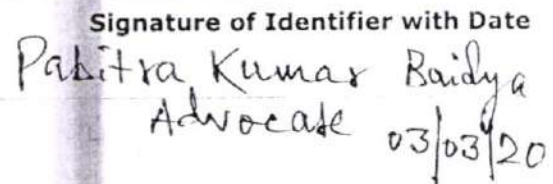 Signature of Identifier with Date
Pabitra Kumar Baidya
Advocate 03/03/20